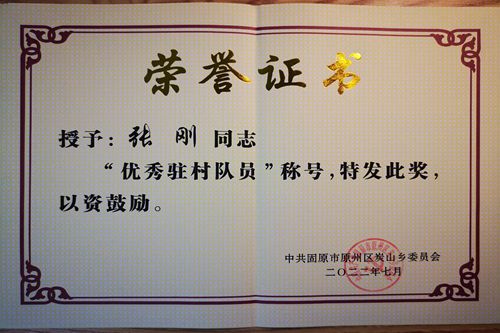 荣誉证书
授予：张刚同志
“优秀驻村队员”称号，特发此奖，
以资鼓励。
中共固原市原州区炭山乡委员会
二〇二二年七月